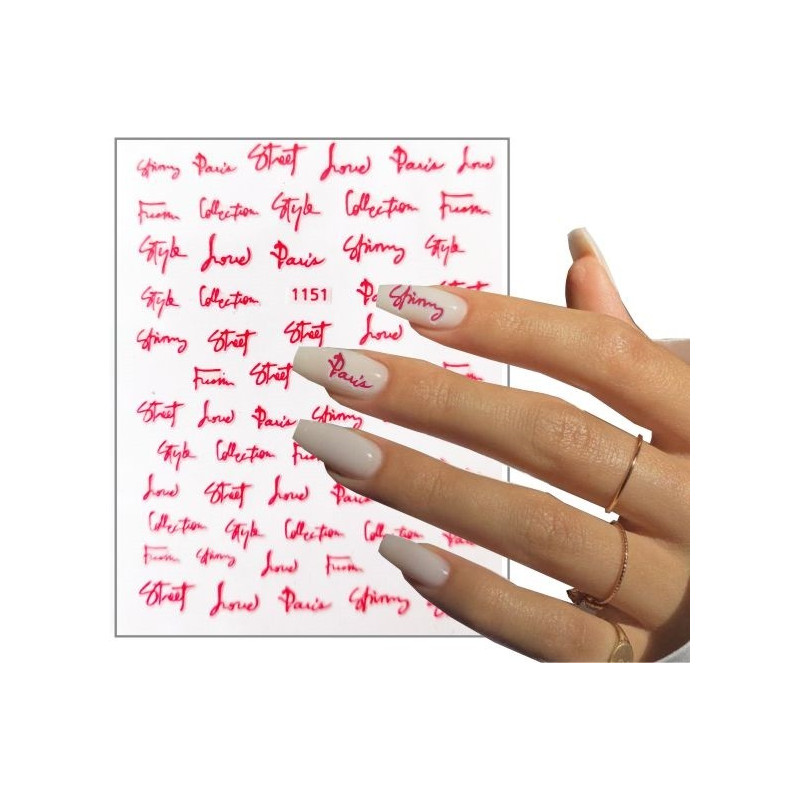 Skinny Paris Street Love Paris Love
Fusion Collection Style Collection Fusion
Style Love Paris Skinny Style
Style Collection 1151 Skinny
Skinny Street Street Love
Fusion Street Paris
Street Love Paris Skinny
Style Collection
Love Street Love
Collection Style Collection Collection
Fusion Skinny Love Fusion
Street Love Paris Skinny